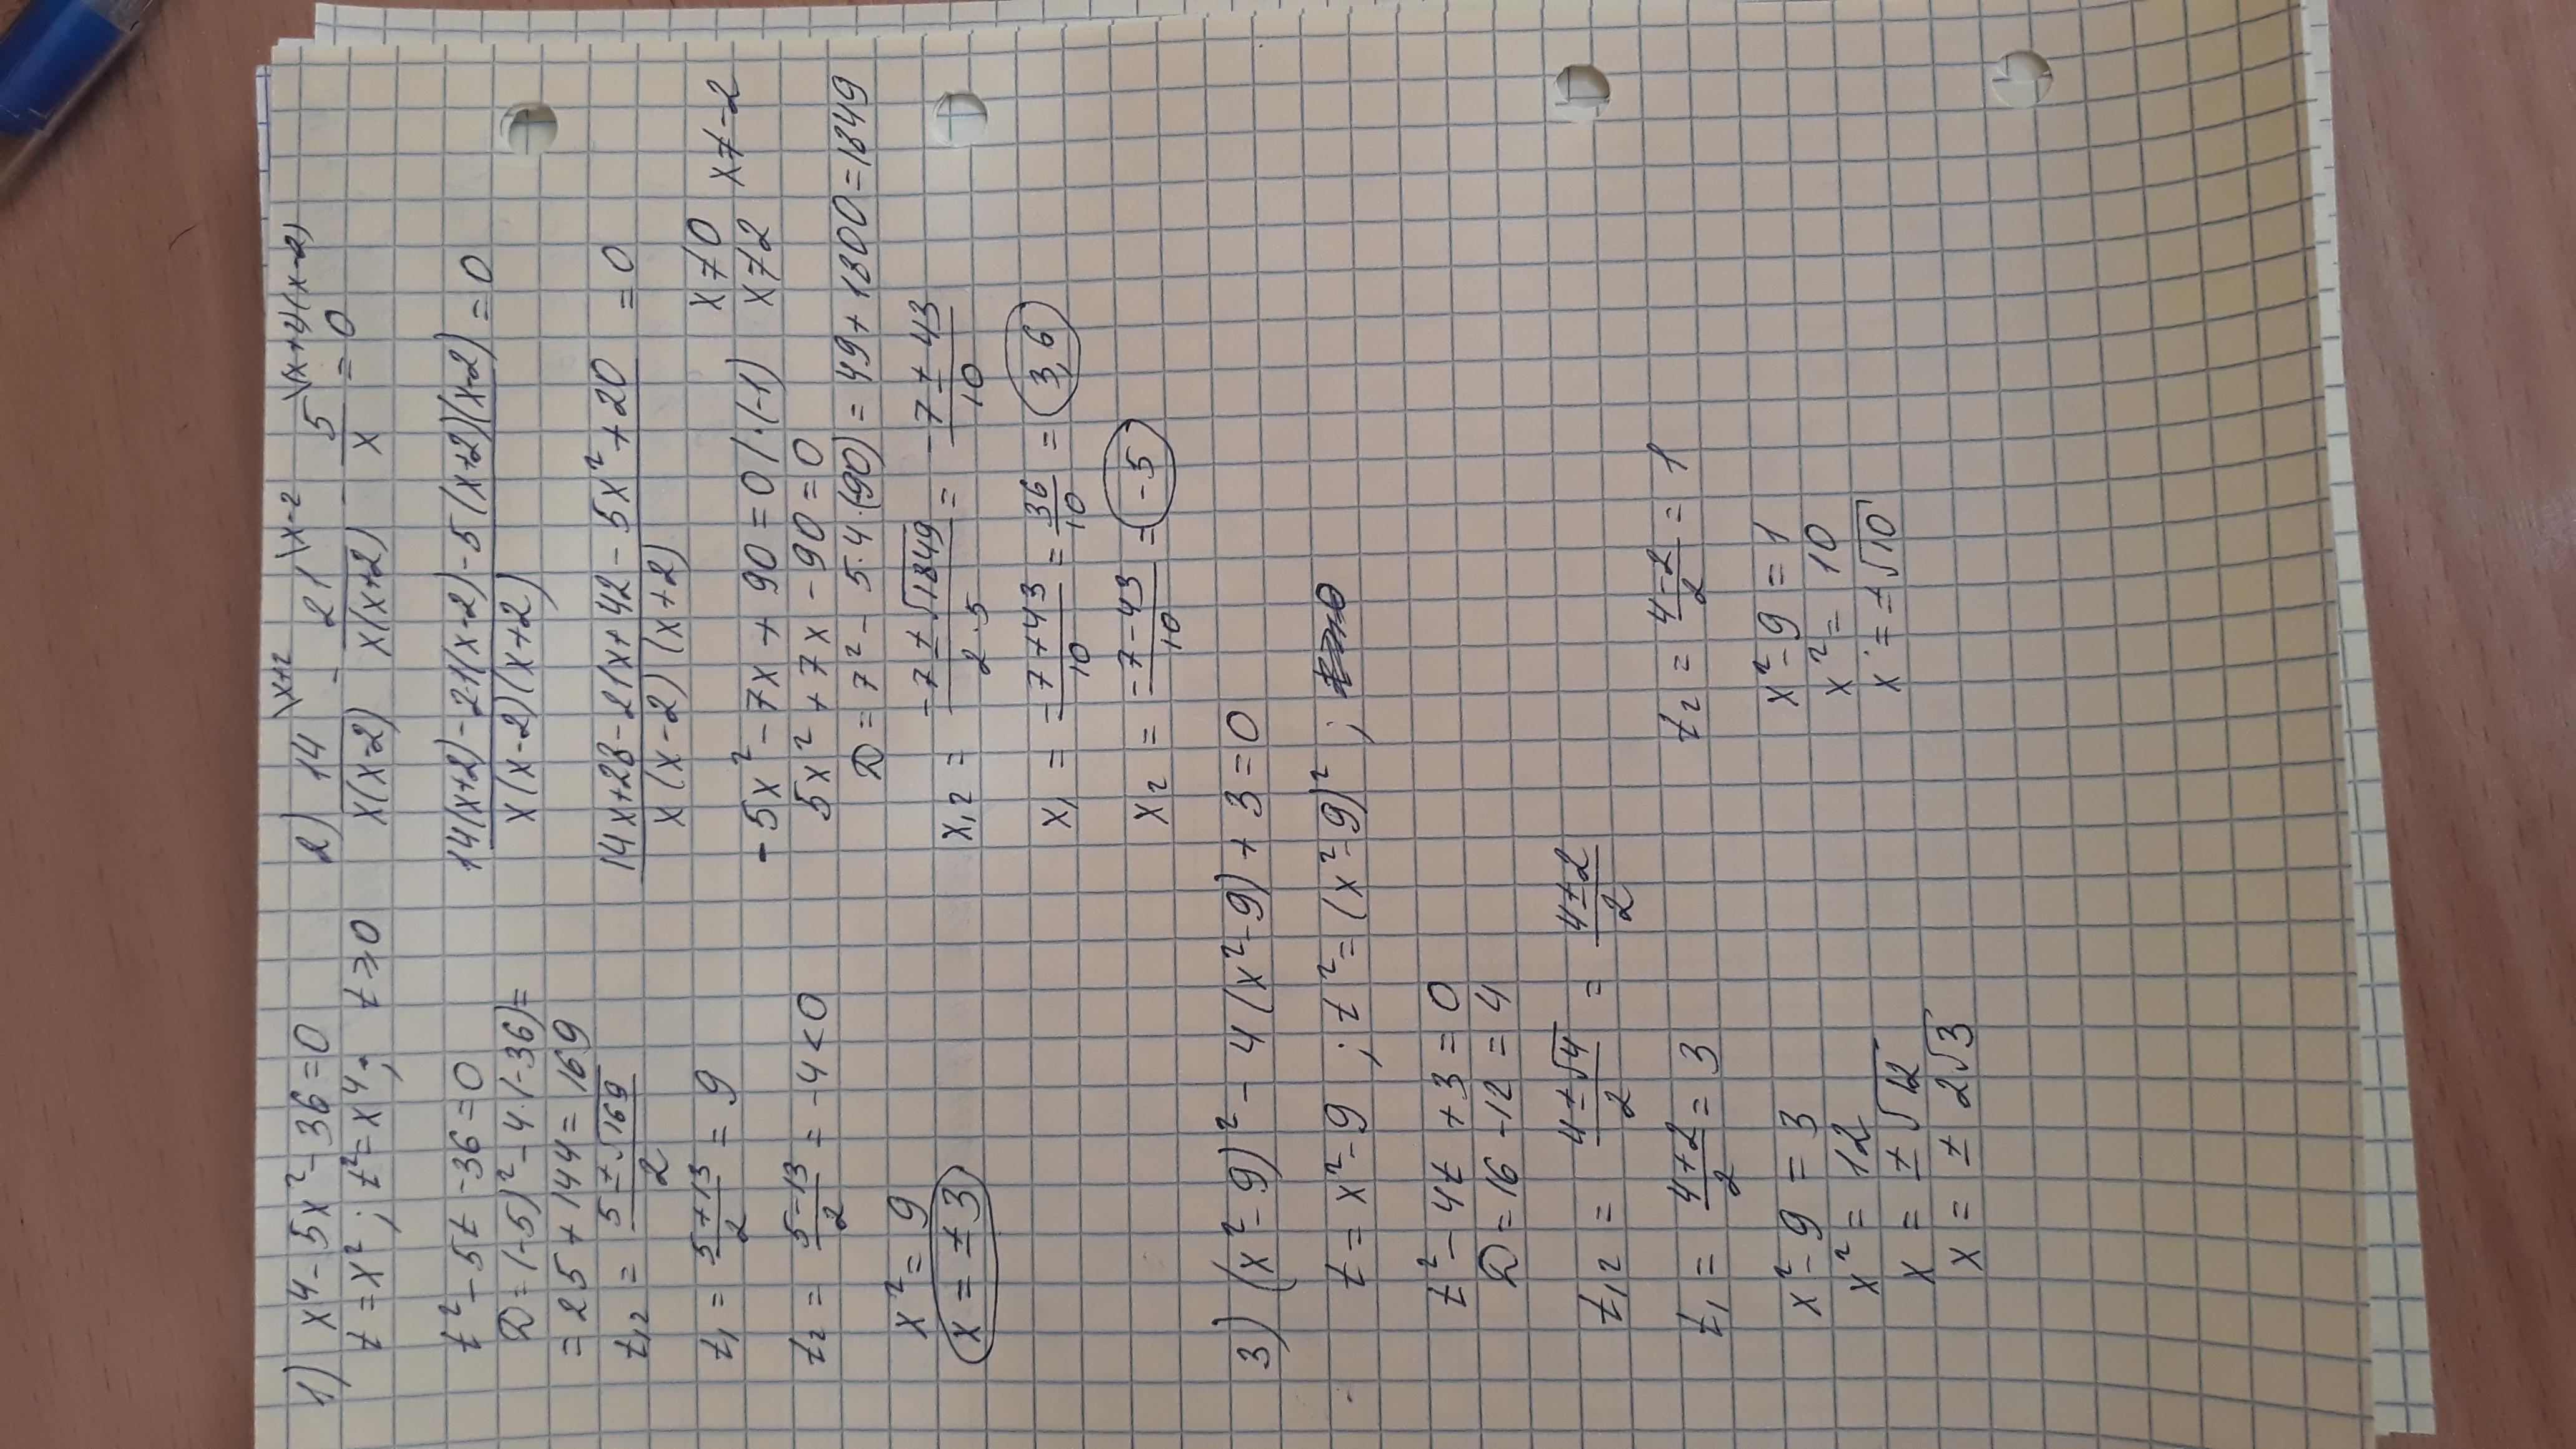 1) x⁴ - 5x² - 36 = 0
t = x² ; t² = x⁴ ; t ⩾ 0
t² - 5t - 36 = 0
D = (-5)² - 4·(-36) =
= 25 + 144 = 169
t₁₂ = (5 ± √169)/2
t₁ = (5+13)/2 = 9
t₂ = (5-13)/2 = -4 < 0
x² = 9
x = ±3
2) 14/(x(x-2)) \x+2 - 21/(x(x+2)) \x-2 - 5/x \(x+4)(x-2) = 0
(14(x+2) - 21(x-2) - 5(x+2)(x-2))/(x(x-2)(x+2)) = 0
(14x+28 - 21x+42 - 5x² + 20)/(x(x-2)(x+2)) = 0
x ≠ 0
-5x² - 7x + 90 = 0 / ·(-1) x ≠ 2 x ≠ -2
5x² + 7x - 90 = 0
D = 7² - 5·4·(-90) = 49 + 1800 = 1849
x₁₂ = (-7 ± √1849)/(2·5) = (-7 ± 43)/10
x₁ = (-7+43)/10 = 36/10 = 3,6
x₂ = (-7-43)/10 = -5
3) (x²-9)² - 4(x²-9) + 3 = 0
t = x²-9 ; t² = (x²-9)² ;
t² - 4t + 3 = 0
D = 16 - 12 = 4
t₁₂ = (4 ± √4)/2 = (4 ± 2)/2
t₁ = (4+2)/2 = 3 t₂ = (4-2)/2 = 1
x² - 9 = 3 x² - 9 = 1
x² = 12 x² = 10
x = ± √12 x = ± √10
x = ± 2√3